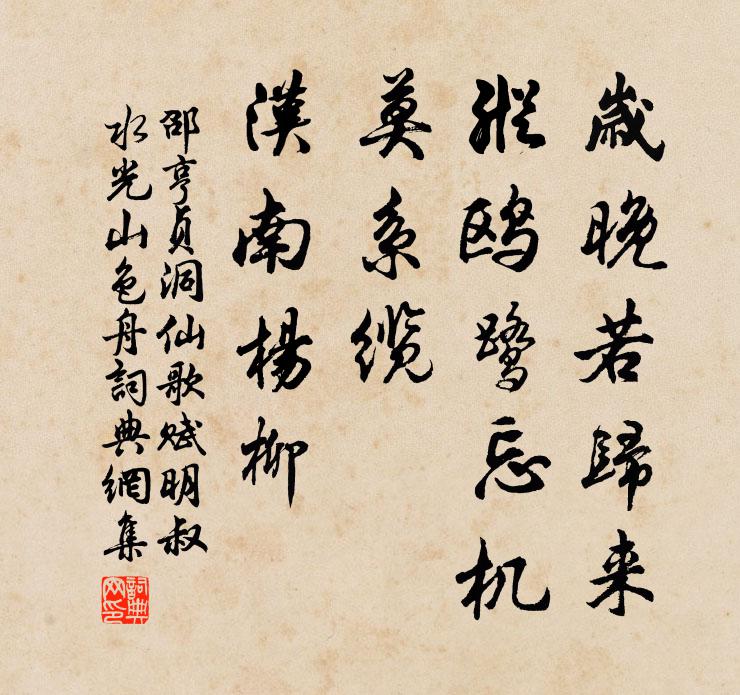 歲晚若歸来
縱鸥鹭忘机
莫系纜
漢南楊柳
邵亨貞洞仙歌賦明叔
水光山色舟詞典網集
詞典網印